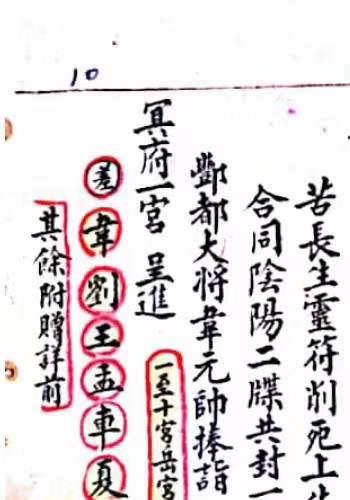 10
苦長生靈符削死上
合同陰陽二牒共封一
酆都大將韋元帥捧詣
冥府一宮 呈進
一至十宮岳宮
差韋劉王孟車夏
其餘附贈詳前